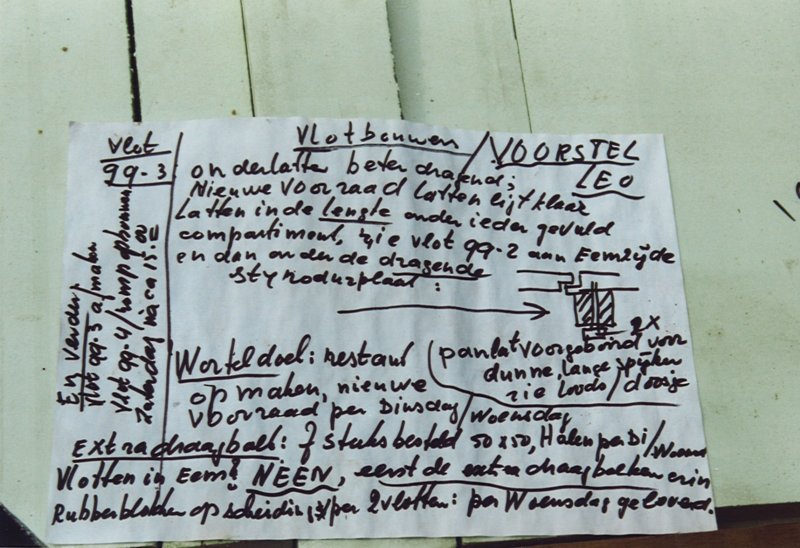 vlot
99-3
Vlotbouwen / VOORSTEL
LEO
onderlatten beter dragend;
Nieuwe Voorraad latten ligt klaar
Latten in de lengte onder ieder gevuld
compartiment, zie vlot 99-2 aan Eemzijde
en dan onder de dragende
Styrodurplaat:
2x
panlat voorgeboord voor
dunne, lange spijker
zie loods/doosje
Worteldoek: restant
opmaken, nieuwe
voorraad per Dinsdag/Woensdag
Extra draagbalk: 7 Stuks besteld 50x50, Halen per Di/Woens
Vlotten in Eem? NEEN, eerst de extra draagbalken erin
Rubberblokken op scheiding per 2 vlotten: per Woensdag geleverd.
En verder,
vlot 99-3 afmaken
vlot 99-4/romp opbouwen
Zaterdag